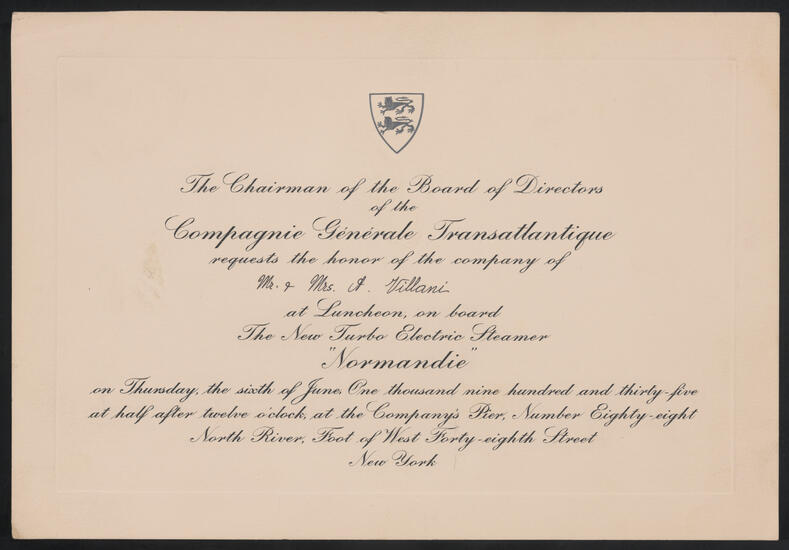 The Chairman of the Board of Directors
of the
Compagnie Générale Transatlantique
requests the honor of the company of
Mr. & Mrs. A. Villani
at Luncheon, on board
The New Turbo Electric Steamer
"Normandie"
on Thursday, the sixth of June, One thousand nine hundred and thirty-five
at half after twelve o'clock, at the Company's Pier, Number Eighty-eight
North River, Foot of West Forty-eighth Street
New York